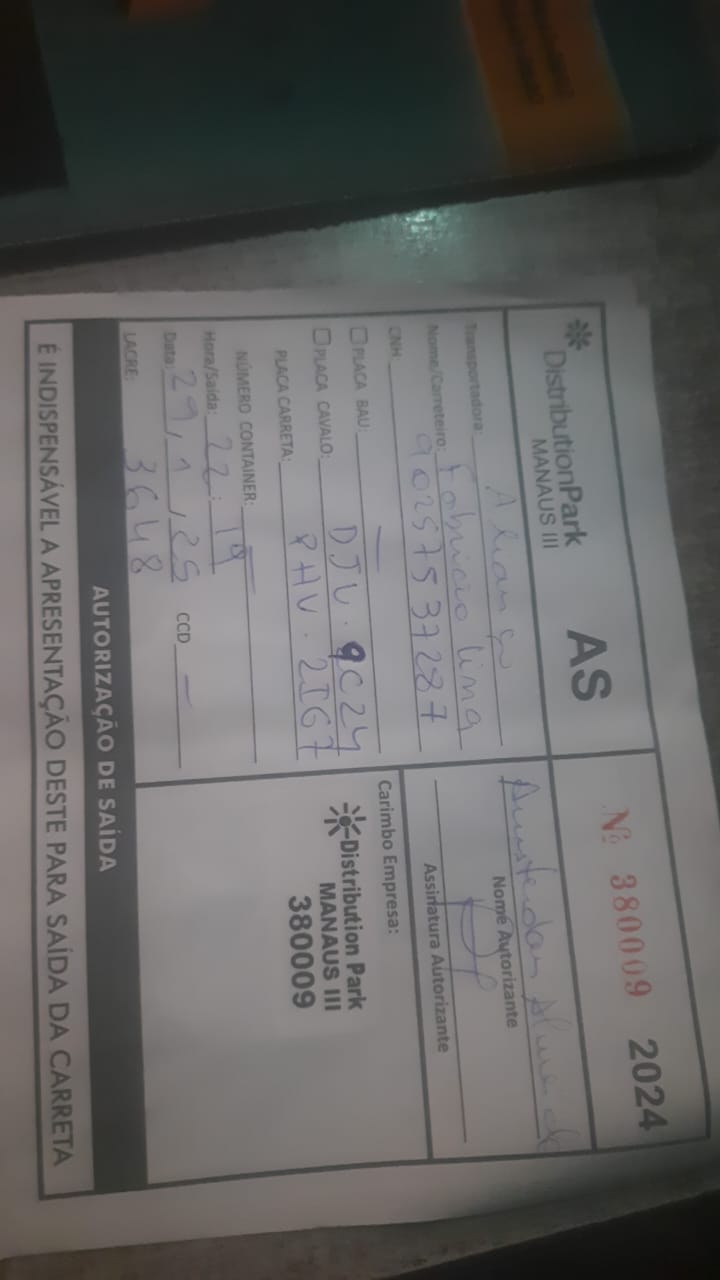 DistributionPark
MANAUS III
AS
Nº 380009 2024
Transportadora: Aliança
Nome/Carreteiro: Fabricio lima
90257537287
CNH
PLACA BAU: —
PLACA CAVALO: DJL·9C24
PLACA CARRETA: PHV·2IG7
NÚMERO CONTAINER: —
Hora/Saída: 22:19
Data: 29/1/25 CCD —
LACRE: 3648
Nome Autorizante
Assinatura Autorizante
Carimbo Empresa:
Distribution Park
MANAUS III
380009
AUTORIZAÇÃO DE SAÍDA
É INDISPENSÁVEL A APRESENTAÇÃO DESTE PARA SAÍDA DA CARRETA